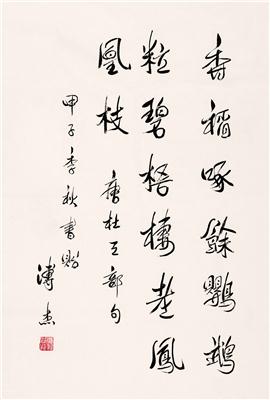 香稻啄餘鸚鵡
粒碧梧棲老鳳
凰枝 唐杜工部句
甲子季秋書贈
溥杰